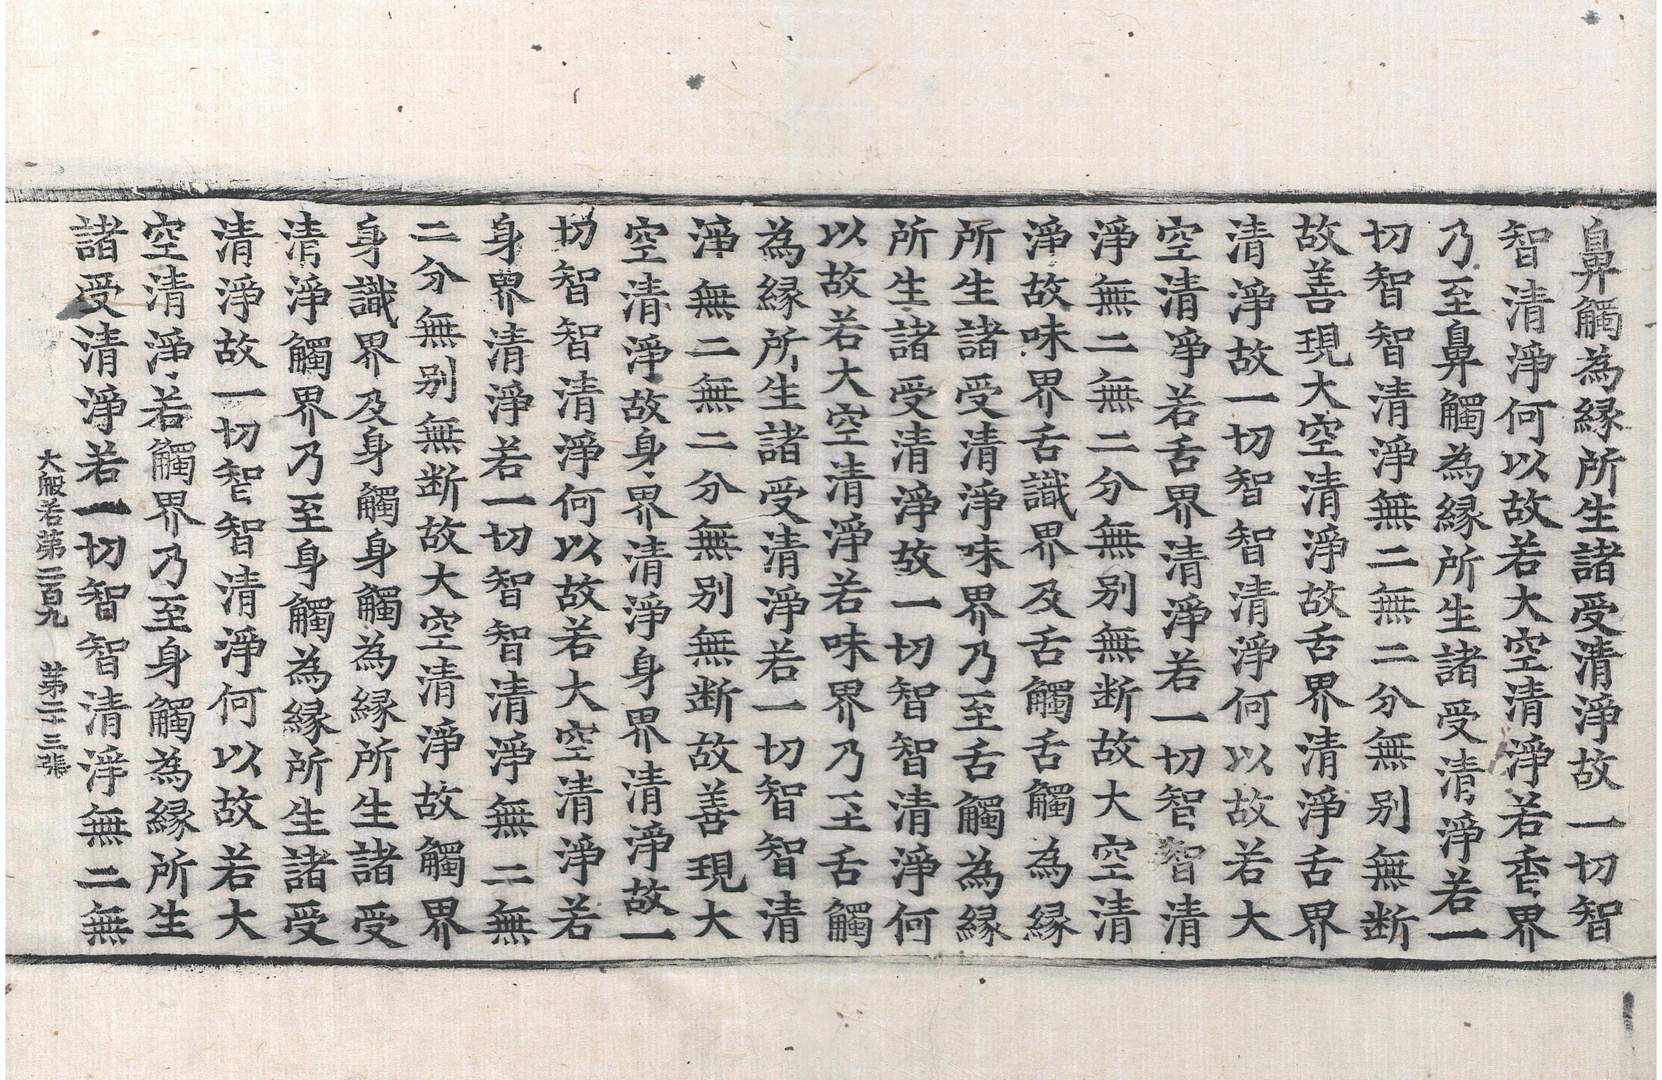 鼻觸為緣所生諸受清淨故一切智
智清淨何以故若大空清淨若香界
乃至鼻觸為緣所生諸受清淨若一
切智智清淨無二無二分無別無斷
故善現大空清淨故舌界清淨舌界
清淨故一切智智清淨何以故若大
空清淨若舌界清淨若一切智智清
淨無二無二分無別無斷故大空清
淨故味界舌識界及舌觸舌觸為緣
所生諸受清淨味界乃至舌觸為緣
所生諸受清淨故一切智智清淨何
以故若大空清淨若味界乃至舌觸
為緣所生諸受清淨若一切智智清
淨無二無二分無別無斷故善現大
空清淨故身界清淨身界清淨故一
切智智清淨何以故若大空清淨若
身界清淨若一切智智清淨無二無
二分無別無斷故大空清淨故觸界
身識界及身觸身觸為緣所生諸受
清淨觸界乃至身觸為緣所生諸受
清淨故一切智智清淨何以故若大
空清淨若觸界乃至身觸為緣所生
諸受清淨若一切智智清淨無二無
大般若第二百九 第二十三張